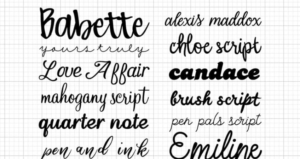 Babette
yours truly
Love Affair
mahogany script
quarter note
pen and ink
alexis maddox
chloe script
candace
brush script
pen pals script
Emiline